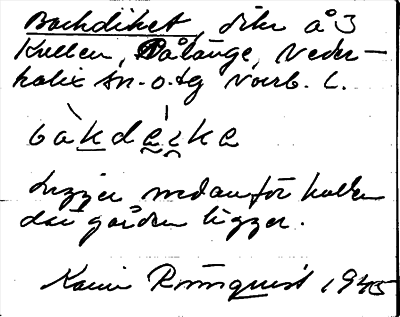 Backdiket, dike å 3
Kullen, Pålänge, Neder-
kalix sn. o. tg Norrb. l.
bàkdéike
Ligger nedanför kullen
där gården ligger.
Karin Rönnquist 1935